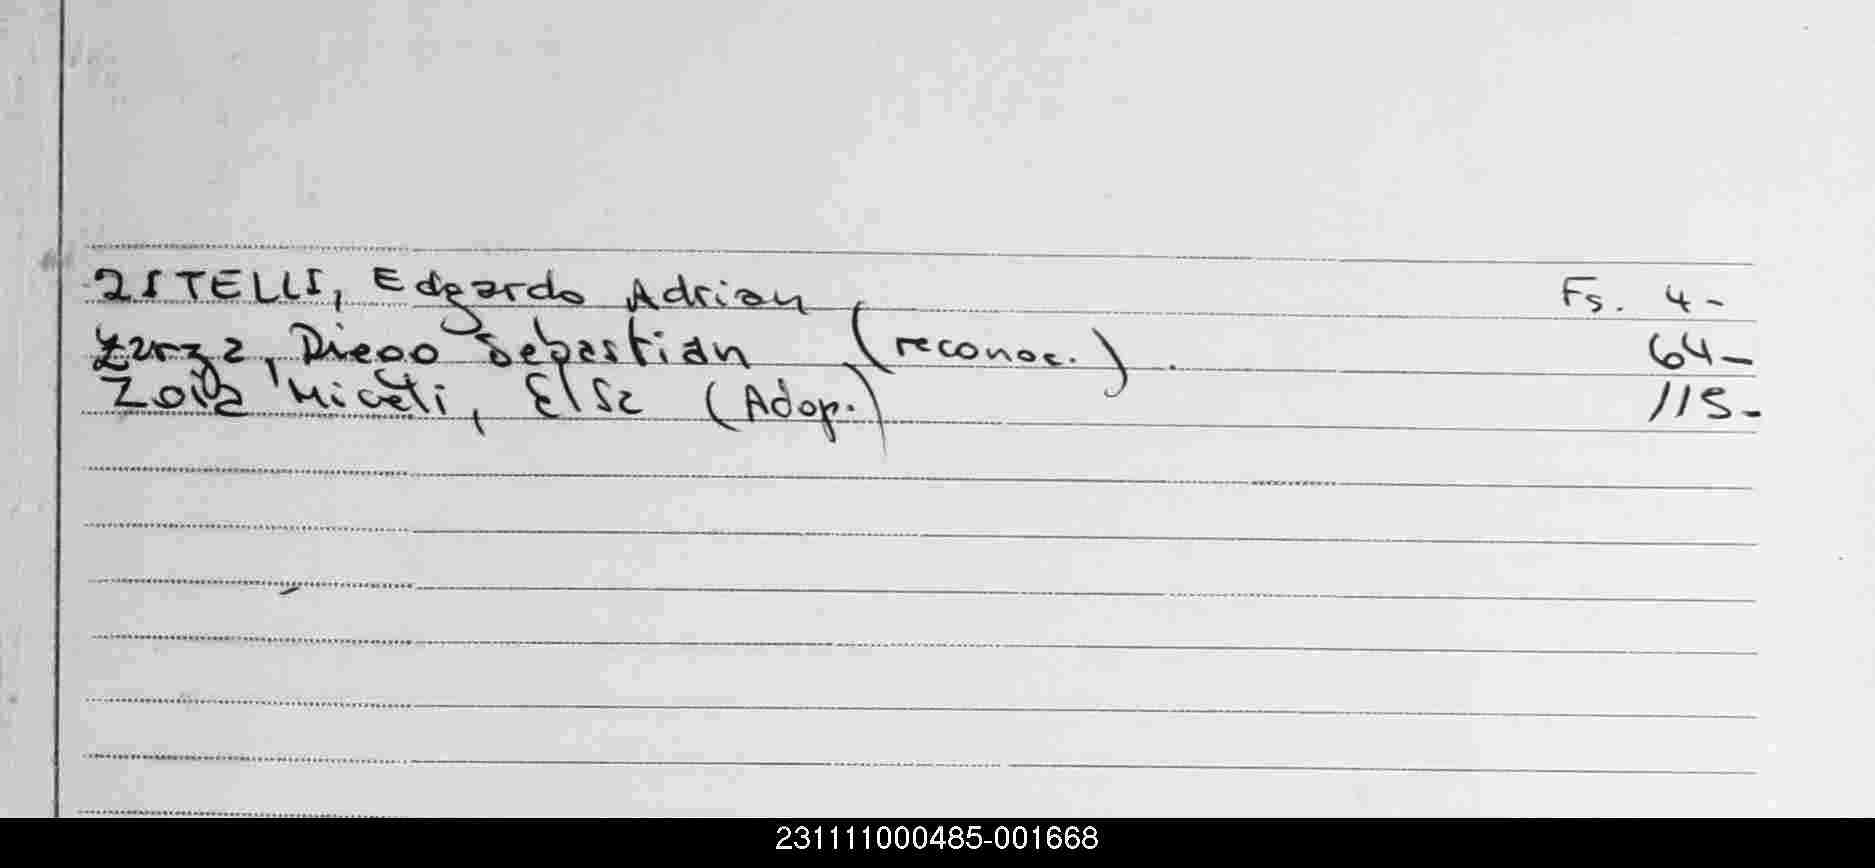 ISTELLS, Edgardo Adrian Fs. 4-
Zurza, Diego Sebastian (reconoc.). 64-
Zoila Miceli, Elsa (Adop.) 115-
231111000485-001668